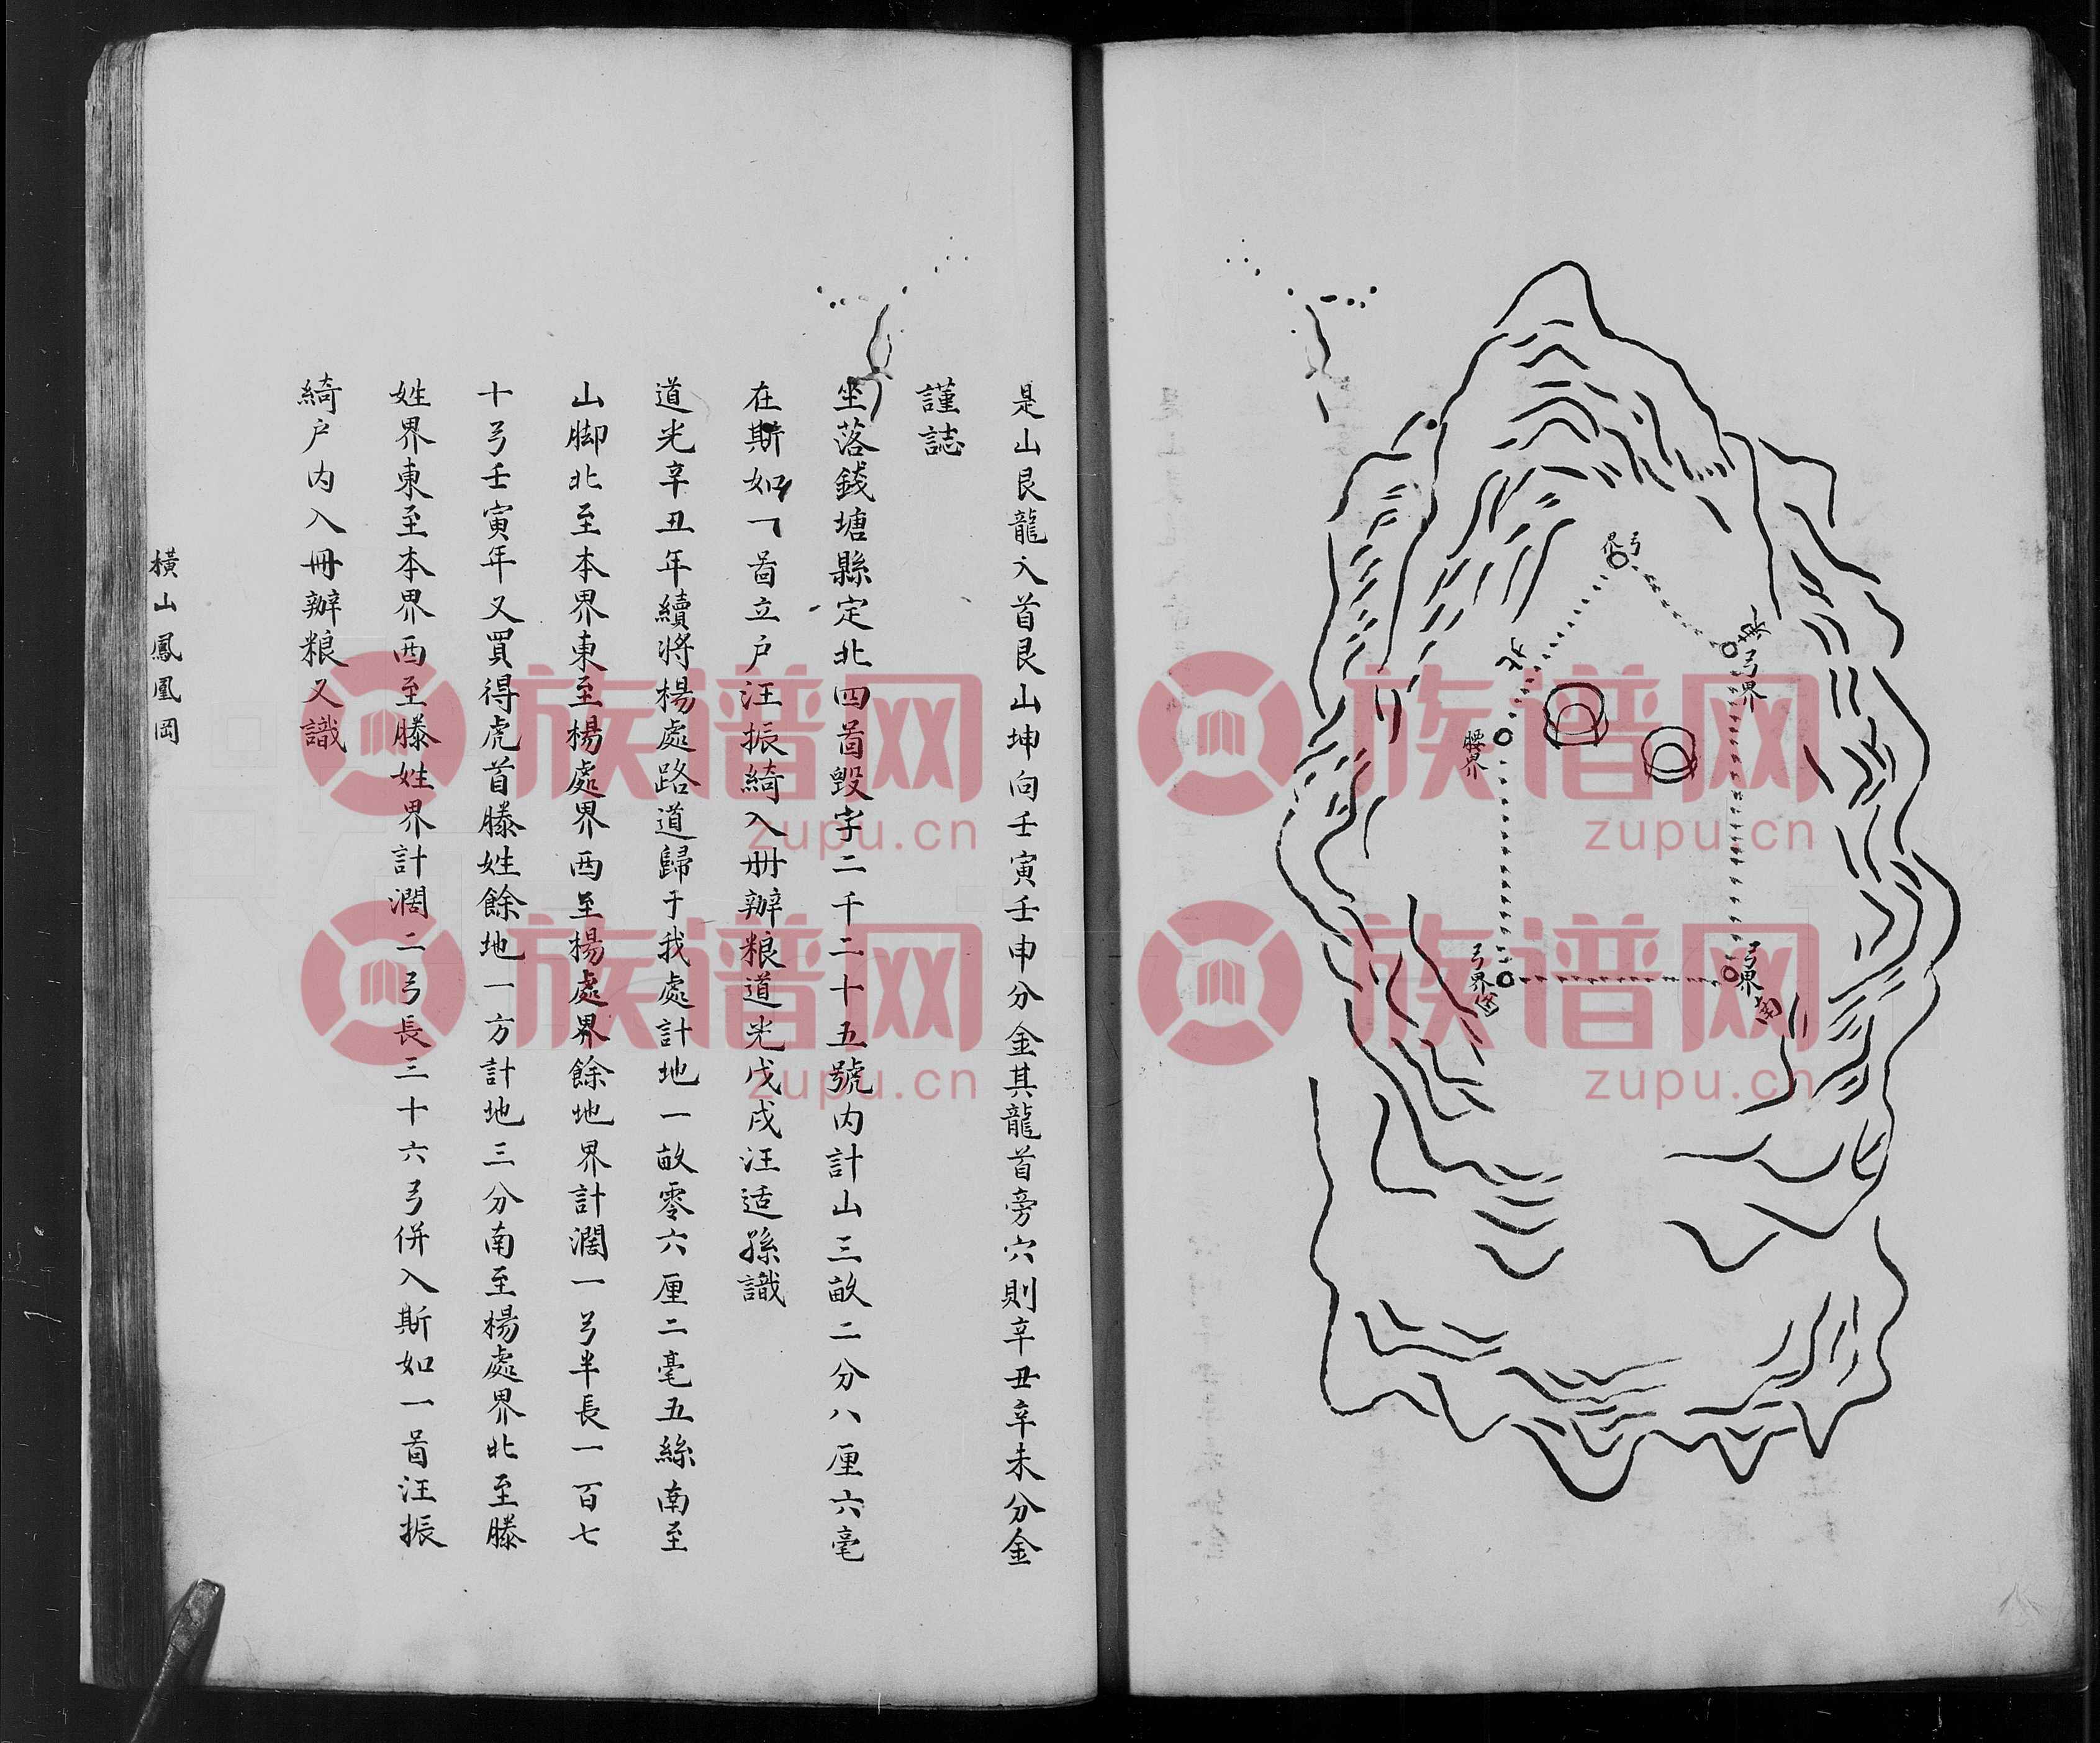 弓界
東
弓界
北
腰界
弓界
南
弓界
西
是山艮龍入首艮山坤向壬寅壬申分金其龍首旁穴則辛丑辛未分金
謹誌
坐落錢塘縣定北四啚毀字二千二十五號内計山三畝二分八厘六毫
在斯如一啚立户汪振綺入册辦粮道光戊戌汪适孫識
道光辛丑年續將楊處路道歸于我處計地一畝零六厘二毫五絲南至
山脚北至本界東至楊處界西至楊處界餘地界計濶一弓半長一百七
十弓壬寅年又買得虎首滕姓餘地一方計地三分南至楊處界北至滕
姓界東至本界西至滕姓界計濶二弓長三十六弓併入斯如一啚汪振
綺户内入冊辦粮又識
橫山鳳凰岡
族谱网
zupu.cn
族谱网
zupu.cn
族谱网
zupu.cn
族谱网
zupu.cn